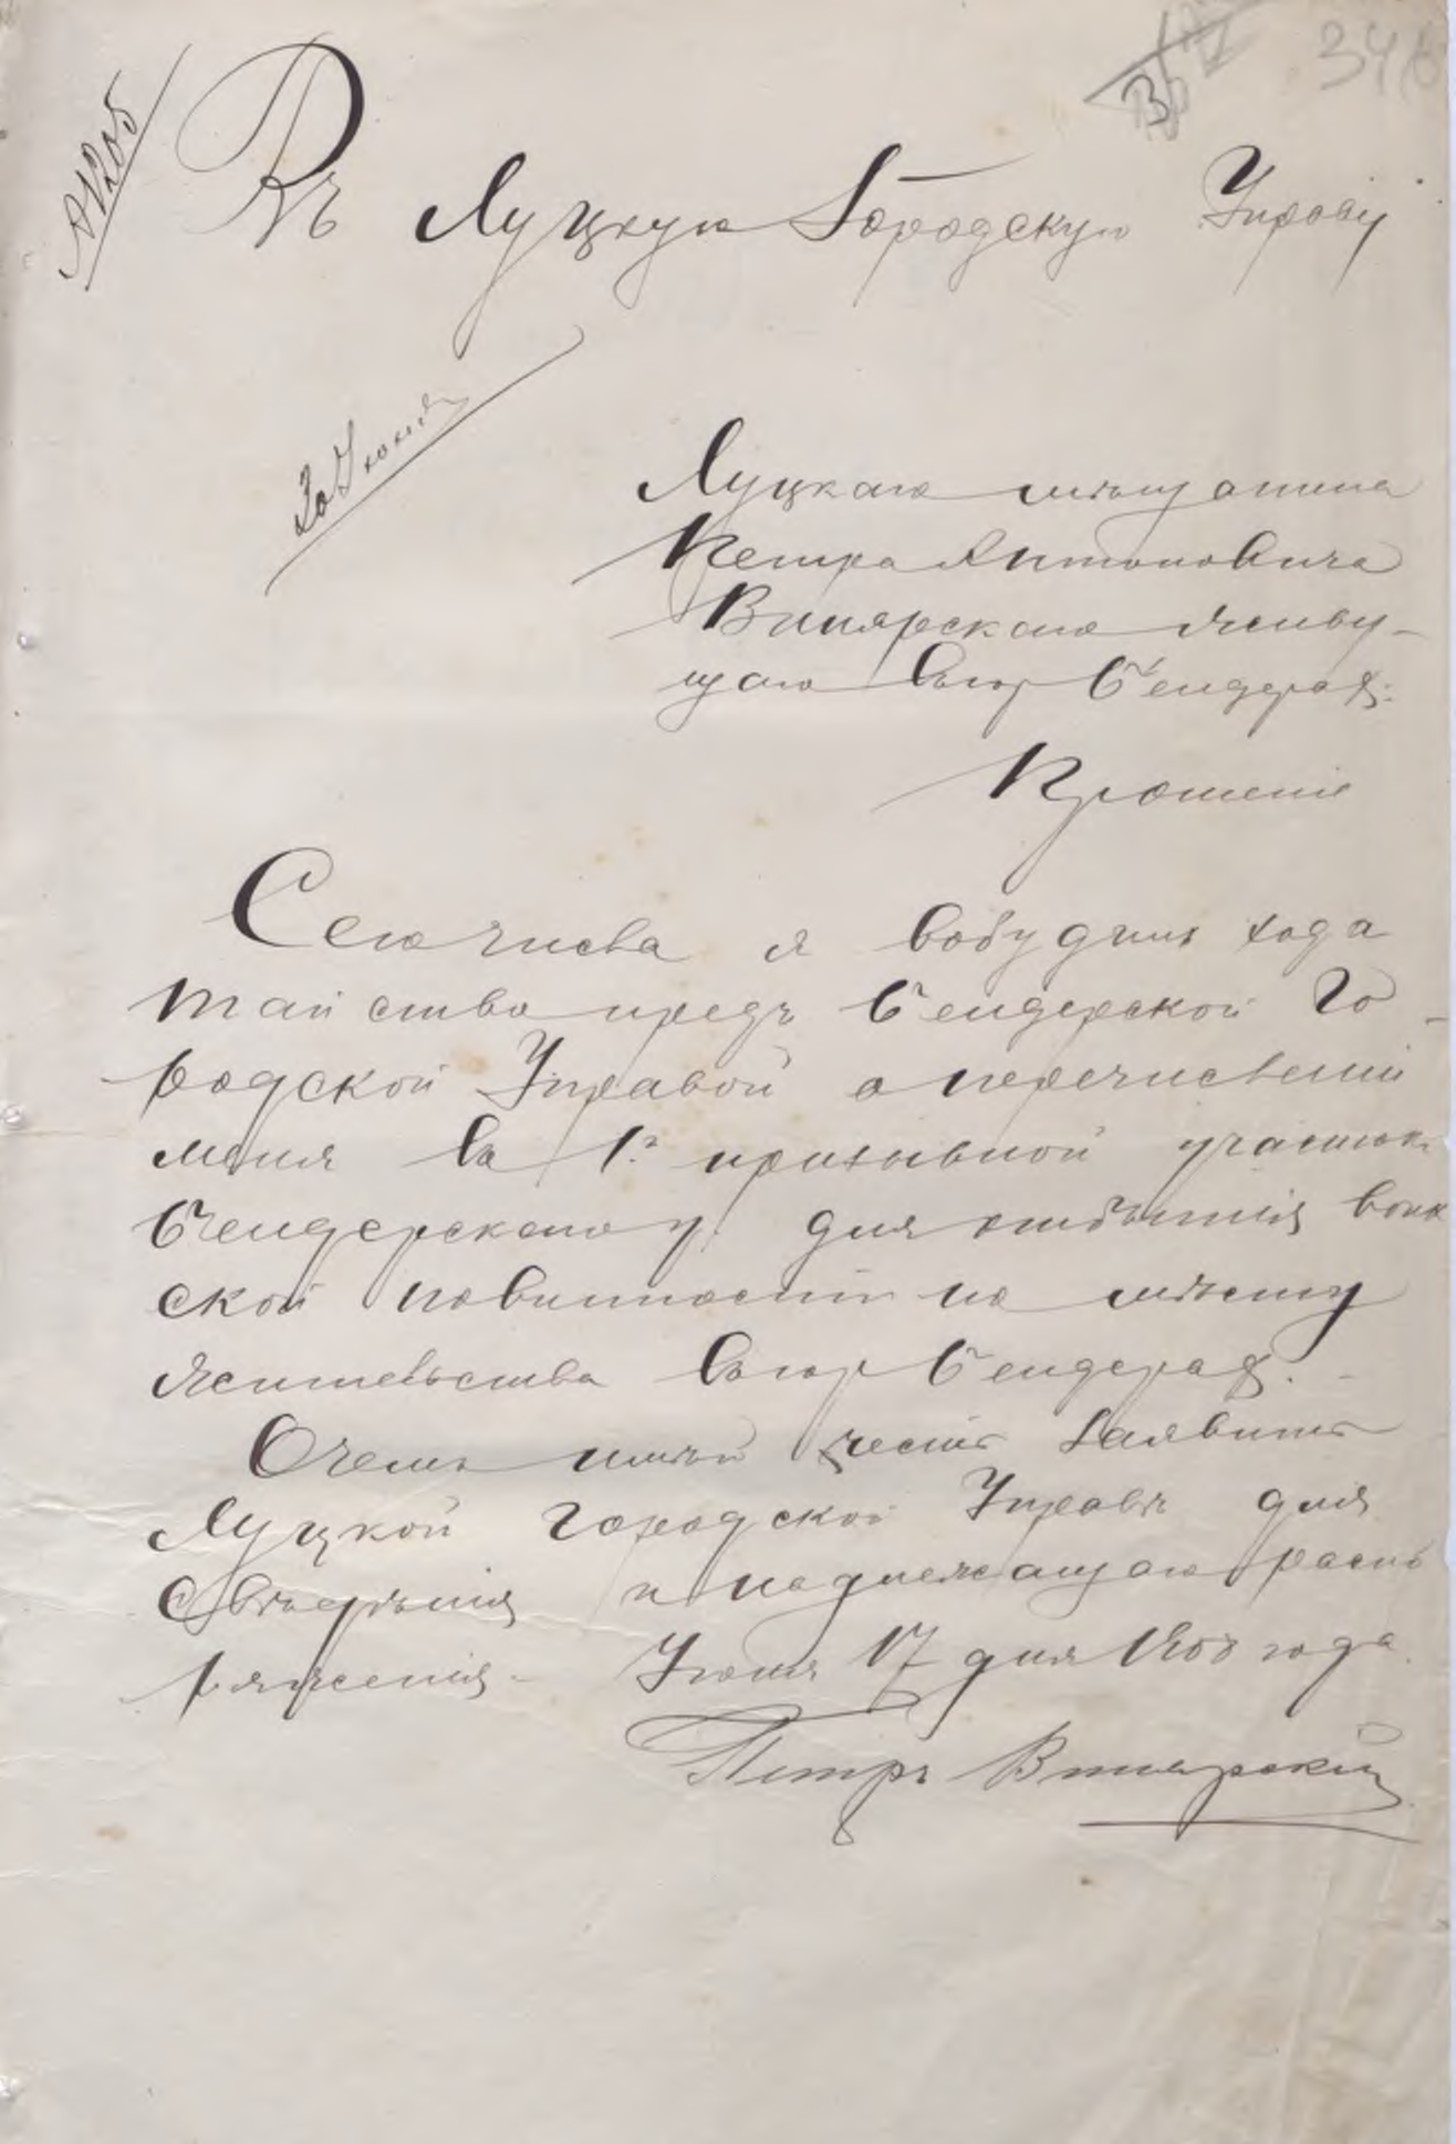 346
Въ Луцкую Городскую Управу
30 Іюня
Луцкаго мѣщанина
Петра Антоновича
Винярскаго живу-
щаго въ гор Бендерах.
Прошеніе
Сего числа я вобудилъ хода
тайство предъ Бендерской Го-
родской Управой о перечисленіи
меня въ 1й призывной участок
Бендерскаго у. для отбытія воин
ской повинности по мѣсту
жительства въ гор Бендерах. -
О чемъ имѣю честь заявить
Луцкой Городской Управѣ для
свѣдѣнія и надлежащаго распо
ряженія - Іюня 17 дня года
Петръ Винярскій